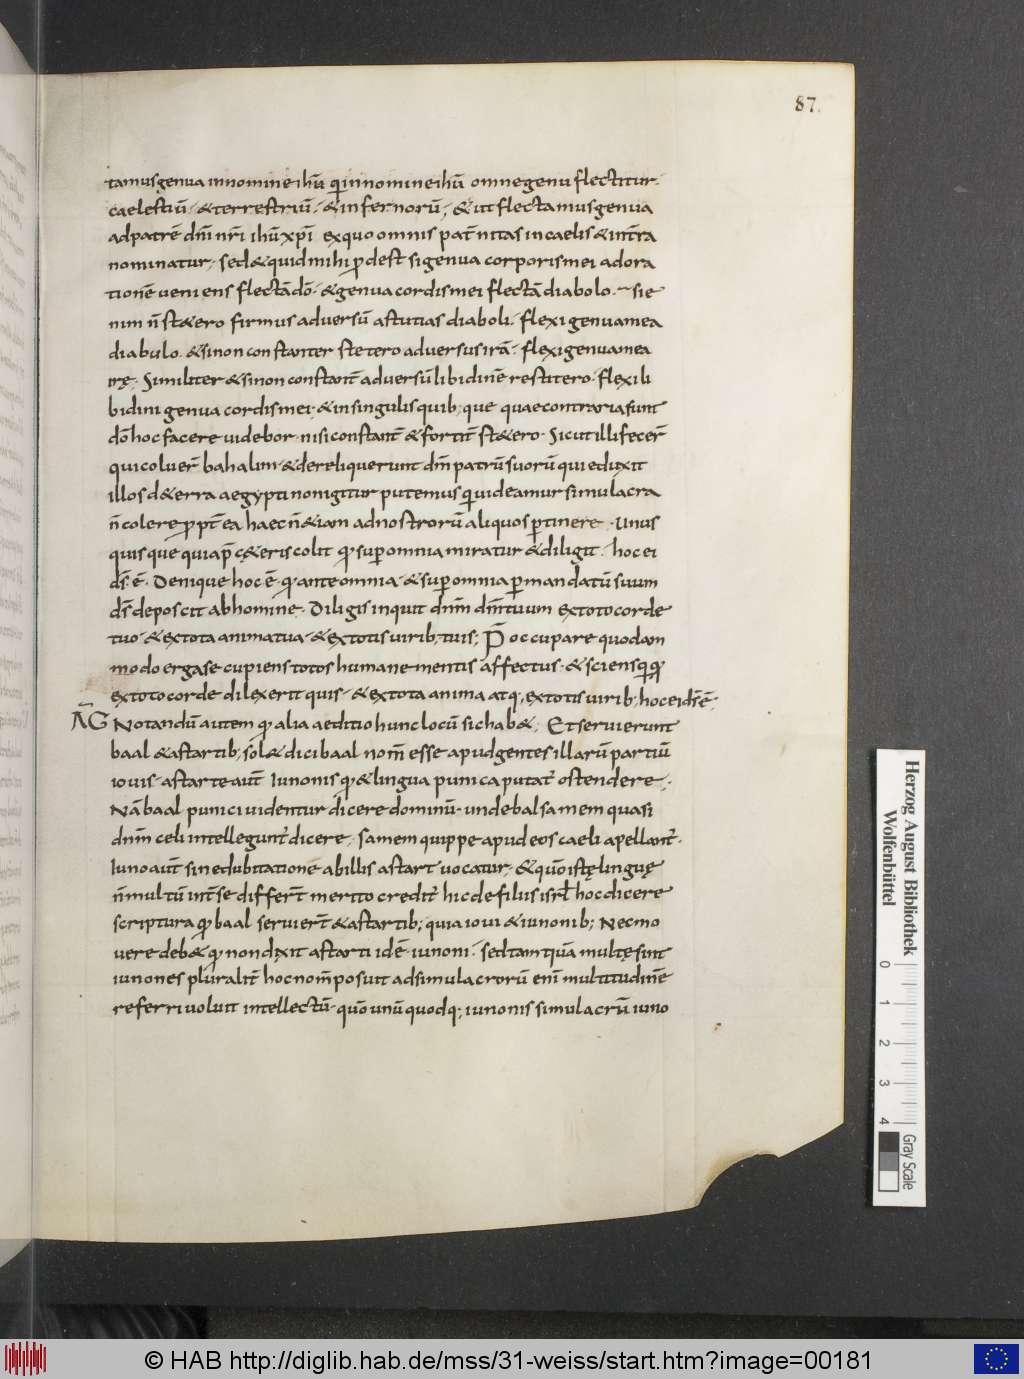 87.
tamus genua in nomine ihū q̄ in nomine ihū omne genu flectitur.
caelestiū. & terrestriū. & infernorū; & ut flectamus genua
ad patrē dn̄i nr̄i ihū xp̄i ex quo omnis pat̄nitas in caelis & in t̄ra
nominatur; sed & quid mihi ꝓdest si genua corporis mei adora
tionē veniens flectā dō. & genua cordis mei flectā diabolo. si e
nim n̄ st&ero firmus adversū astutias diaboli. flexi genua mea
diabulo. & si non constanter stetero adversus irā. flexi genua mea
irę. Similiter & si non constant̄ adversū libidinē restitero. flexi li
bidini genua cordis mei. & in singulis quib; que quae contraria sunt
dō hoc facere videbor nisi constant̄ & fortit̄ st&ero. Sicut illi fecer̄
qui coluer̄ bahalim & dereliquerunt dm̄ patrū suorū qui eduxit
illos d& erra aegypti non igitur putemus q̄ videamur simulacra
n̄ colere ꝓpt̄ ea haec n̄ &iam ad nostrorū aliquos ꝑtinere. Unus
quisque quia p̄ c&eris colit qđ suꝑ omnia miratur & diligit. hoc ei
ds̄ ē. Denique hoc ē qđ ante omnia & suꝑ omnia ꝑmandatū suum
ds̄ deposcit ab homine. Diligis inquit dnm̄ dm̄ tuum ex toto corde
tuo & ex tota anima tua & ex totis virib; tuis; p̄occupare quodam
modo erga se cupiens totos humane mentis affectus. & sciens q̄ qđ
ex toto corde dilexerit quis & ex tota anima atq; ex totis virib; hoc ei ds̄ ē;
AG Notandū autem qđ alia aeditio hunc locū sic hab&; Et servierunt
baal & astartib; sol& dici baal nom̄ esse apud gentes illarū partiū
iovis. astarte aut̄ iunonis qđ & lingua punica putat̄ ostendere.
Nā baal punici videntur dicere dominū unde balsamem quasi
dnm̄ celi intellegunt̄ dicere; samem quippe apud eos caeli apellant̄.
Iuno aut̄ sine dubitatione ab illis astart vocatur; & quō istę linguę
n̄ multū int̄ se differt̄ merito credit̄ hic de filiis isrl̄ hoc dicere
scriptura qđ baal servier̄t & astartib; quia iovi & iunonib; Nec mo
vere deb& qđ non dixit astarti idē iunoni. sed tamquā multę sint
iunones pluralit̄ hoc nom̄ posuit ad simulacrorū enī multitudinē
referri voluit intellectū quō unū quodq; iunonis simulacrū iuno
Herzog August Bibliothek
Wolfenbüttel
0 1 2 3 4
Gray Scale
© HAB http://diglib.hab.de/mss/31-weiss/start.htm?image=00181